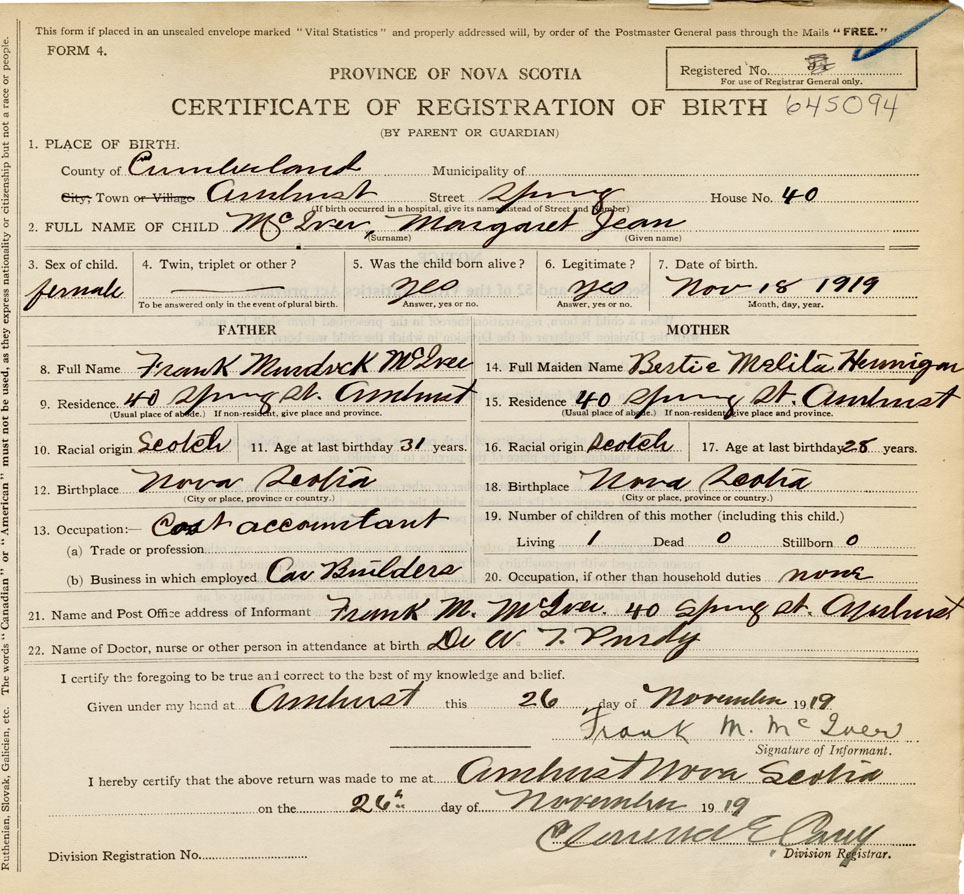 This form if placed in an unsealed envelope marked "Vital Statistics" and properly addressed will, by order of the Postmaster General pass through the Mails "FREE."
FORM 4.
Registered No.
For use of Registrar General only.
PROVINCE OF NOVA SCOTIA
CERTIFICATE OF REGISTRATION OF BIRTH 645094
(BY PARENT OR GUARDIAN)
1. PLACE OF BIRTH.
County of Cumberland Municipality of
City; Town or Village Amhurst Street Spring House No. 40
(If birth occurred in a hospital, give its name instead of Street and Number)
2. FULL NAME OF CHILD McIver, Margaret Jean
(Surname) (Given name)
3. Sex of child. 4. Twin, triplet or other? 5. Was the child born alive? 6. Legitimate? 7. Date of birth.
female yes yes Nov 18 1919
To be answered only in the event of plural birth. Answer, yes or no. Answer, yes or no. Month, day, year.
FATHER MOTHER
8. Full Name Frank Murdock McIver 14. Full Maiden Name Bertie Melita Hennigar
9. Residence. 40 Spring St. Amhurst 15. Residence 40 Spring St. Amhurst
(Usual place of abode.) If non-resident, give place and province. (Usual place of abode.) If non-resident, give place and province.
10. Racial origin Scotch 11. Age at last birthday 31 years. 16. Racial origin Scotch 17. Age at last birthday 28 years.
12. Birthplace Nova Scotia 18. Birthplace Nova Scotia
(City or place, province or country.) (City or place, province or country.)
13. Occupation:— Cost accountant 19. Number of children of this mother (including this child.)
(a) Trade or profession Living 1 Dead 0 Stillborn 0
(b) Business in which employed Car Builders 20. Occupation, if other than household duties none
21. Name and Post Office address of Informant Frank M. McIver. 40 Spring St. Amhurst
22. Name of Doctor, nurse or other person in attendance at birth Dr W. T. Purdy
I certify the foregoing to be true and correct to the best of my knowledge and belief.
Given under my hand at Amhurst this 26 day of November 1919.
Frank M. McIver
Signature of Informant.
I hereby certify that the above return was made to me at Amhurst Nova Scotia
on the 26th day of November 1919
E
Division Registration No. Division Registrar.
Ruthenian, Slovak, Galician, etc. The words "Canadian" or "American" must not be used, as they express nationality or citizenship but not a race or people.